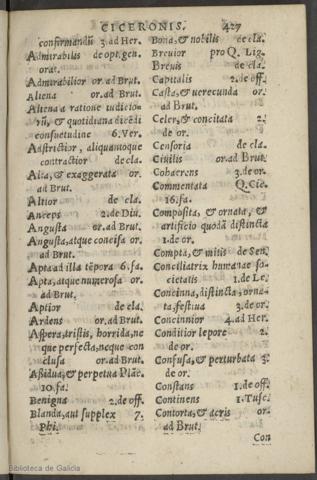 CICERONIS. 427
confirmandũ 3.ad Her.
Admirabilis de opt.gen.
orat.
Admirabilior or.ad Brut.
Aliena or.ad Brut.
Aliena a ratione iudicio-
rũ, & quotidiana dicẽdi
consuetudine 6.Ver.
Adstrictior, aliquantoque
contractior de cla.
Alta, & exaggerata or.
ad Brut.
Altior de cla.
Anceps 2.de Diu.
Angusta or.ad Brut.
Angusta, atque concisa or.
ad Brut.
Apta ad illa tẽpora 6.fa.
Apta, atque numerosa or.
ad Brut.
Aptior de cla.
Ardens or.ad Brut.
Aspera, tristis, horrida, ne
que perfecta, neque con
clusa or.ad Brut.
Assidua, & perpetua Plãc.
10.fa.
Benigna 2.de off.
Blanda, aut supplex 7.
Phi.
Bona, & nobilis de cla.
Breuior pro Q. Lig.
Breuis de cla.
Capitalis 2.de off.
Casta, & uerecunda or.
ad Brut.
Celer, & concitata 2.
de or.
Censoria de cla.
Ciuilis or.ad Brut.
Cohaerens 3.de or.
Commentata Q.Cic.
16.fa.
Composita, & ornata, &
artificio quodã distincta
1.de or.
Compta, & mitis de Sen.
Conciliatrix humanae so-
cietatis 1.de Le.
Concinna, distincta, orna-
ta, festiua 3.de or.
Concinnior 4.ad Her.
Conditior lepore 2.
de or.
Confusa, & perturbata 3.
de or.
Constans 1.de off.
Continens 1.Tusc.
Contorta, & acris or.
ad Brut.
Con
Biblioteca de Galicia